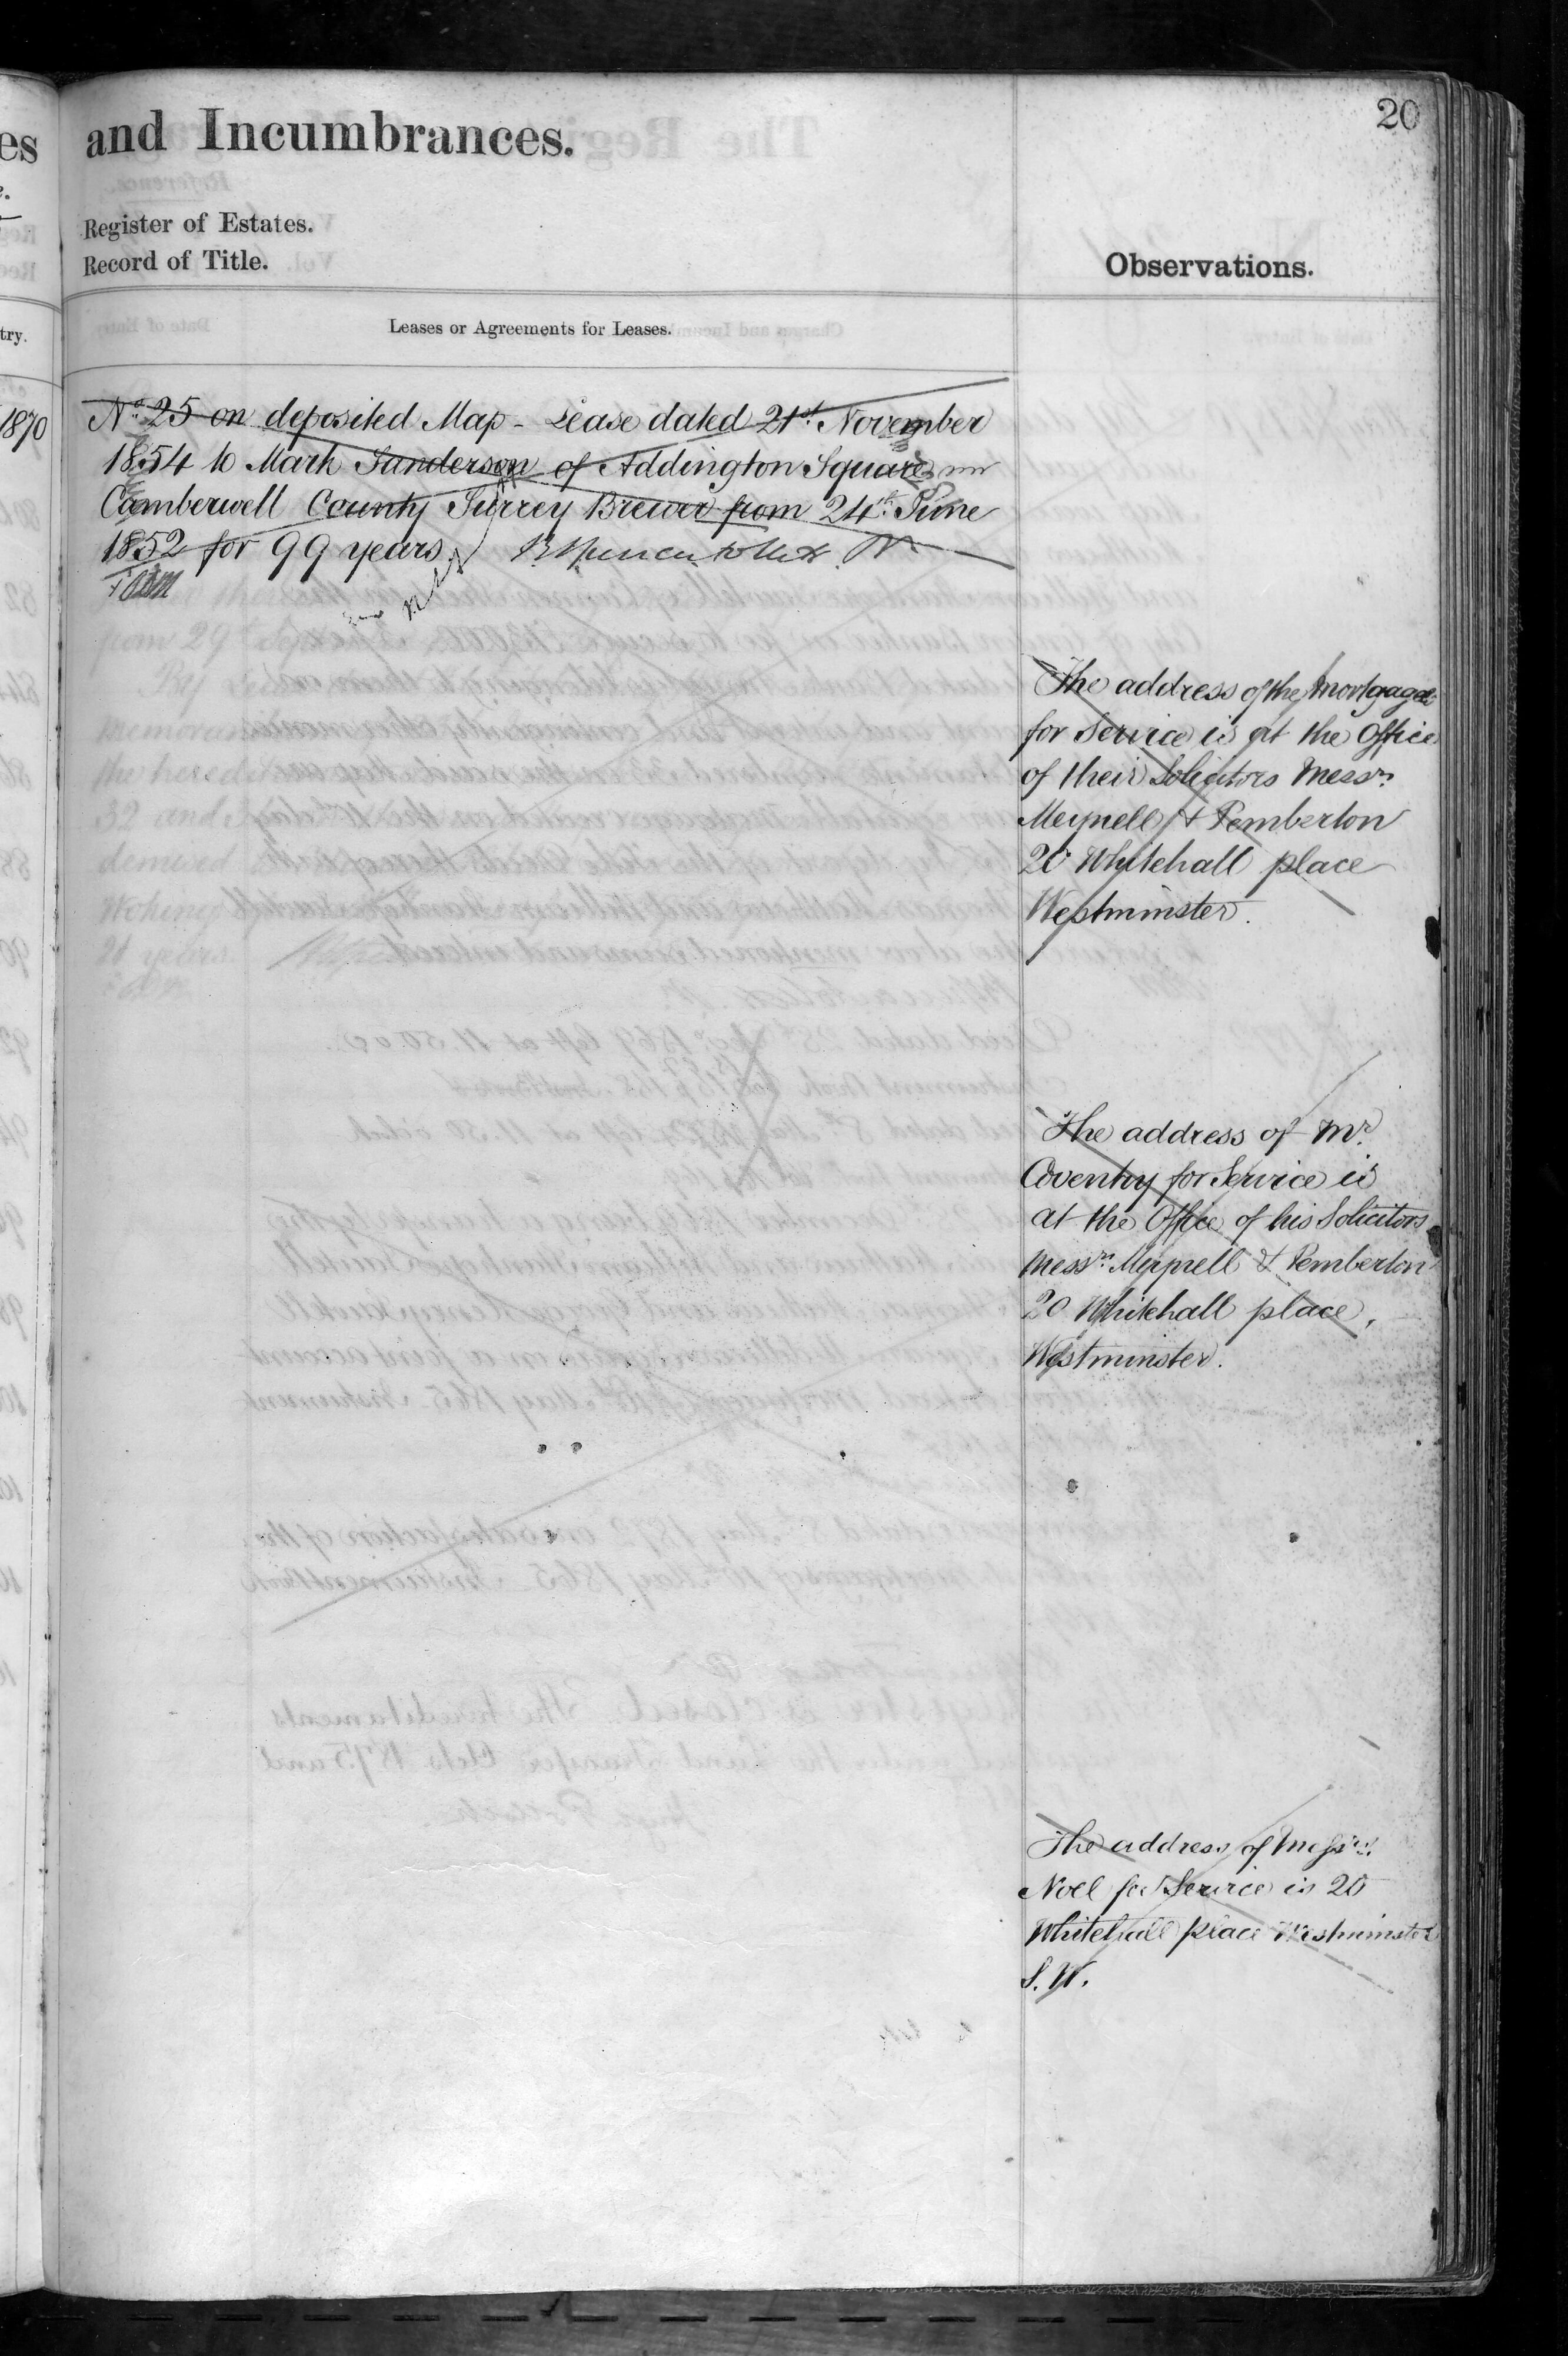 es
and Incumbrances.
20
Register of Estates.
Record of Title.
Observations.
try.
Leases or Agreements for Leases.
1870
No. 25 on deposited Map - Lease dated 21st November
1854 to Mark Sanderson of Addington Square in
Camberwell County Surrey Brewer from 24th June
1852 for 99 years.
The address of the Mortgagee
for Service is at the Office
of their Solicitors Messrs.
Meynell & Pemberton
20 Whitehall place
Westminster.
The address of Mr.
Coventry for Service is
at the Office of his Solicitors
Messrs. Meynell & Pemberton
20 Whitehall place,
Westminster.
The address of Messrs.
Noel for Service is 20
Whitehall place Westminster
S.W.